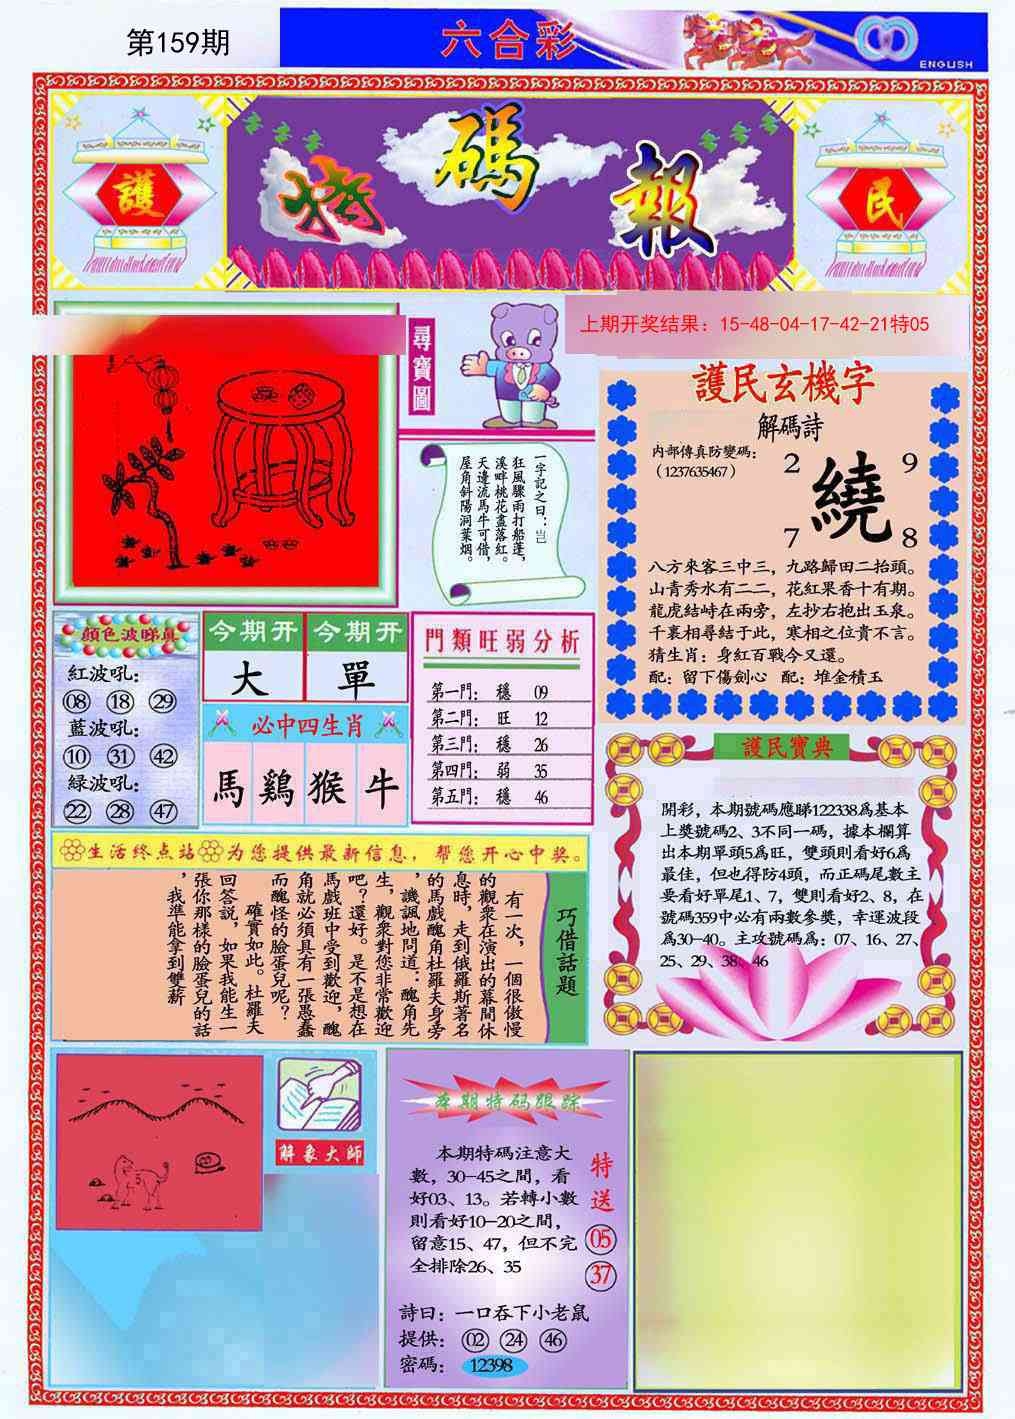 第159期
六合彩
ENGLISH
護
特碼報
民
上期开奖结果：15-48-04-17-42-21特05
尋寶圖
一字記之曰：岂
狂風驟雨打船蓬，
溪畔桃花盡落紅。
天邊流馬牛可借，
屋角斜陽洞葉烟。
護民玄機字
解碼詩
内部傳真防變碼：
（1237635467）
2 9
繞
7 8
八方來客三中三，九路歸田二抬頭。
山青秀水有二二，花紅果香十有期。
龍虎結峙在兩旁，左抄右抱出玉泉。
千裏相尋結于此，寒相之位貴不言。
猜生肖：身紅百戰今又還。
配：留下傷劍心 配：堆金積玉
顔色波睇真
紅波吼：
08 18 29
藍波吼：
10 31 42
緑波吼：
22 28 47
今期开 今期开
大 單
必中四生肖
馬 鷄 猴 牛
門類旺弱分析
第一門： 穩 09
第二門： 旺 12
第三門： 穩 26
第四門： 弱 35
第五門： 穩 46
護民寶典
開彩，本期號碼應睇122338爲基本
上獎號碼2、3不同一碼，據本欄算
出本期單頭5爲旺，雙頭則看好6爲
最佳，但也得防4頭，而正碼尾數主
要看好單尾1、7，雙則看好2、8，在
號碼359中必有兩數參獎，幸運波段
爲30-40。主攻號碼爲：07、16、27、
25、29、38、46
生活终点站 为您提供最新信息，帮您开心中奖。
巧借話題
有一次，一個很傲慢
的觀衆在演出的幕間休
息時，走到俄羅斯著名
的馬戲醜角杜羅夫身旁
，譏諷地問道：醜角先
生，觀衆對您非常歡迎
吧？還好。是不是想在
馬戲班中受到歡迎，醜
角就必須具有一張愚蠢
而醜怪的臉蛋兒呢？
確實如此。杜羅夫
回答説，如果我能生一
張你那樣的臉蛋兒的話
，我準能拿到雙薪
解象大師
本期特码跟踪
本期特碼注意大
數，30-45之間，看
好03、13。若轉小數
則看好10-20之間，
留意15、47，但不完
全排除26、35
特送
05
37
詩曰：一口吞下小老鼠
提供：02 24 46
密碼：12398